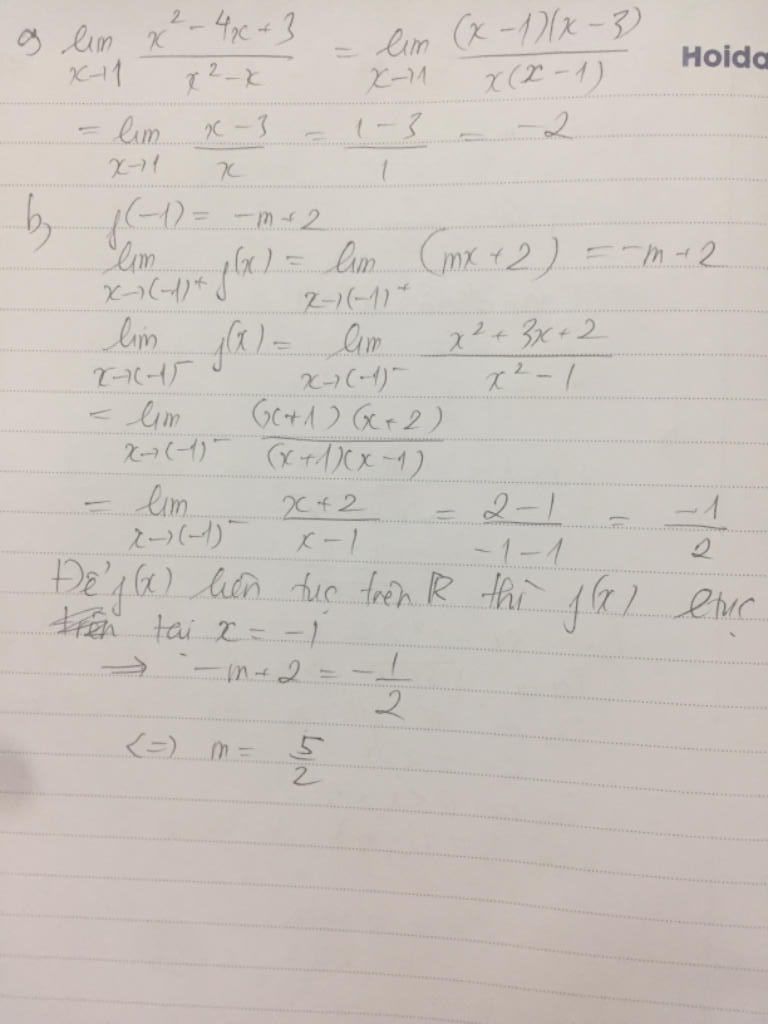 a) lim x→1 (x² - 4x + 3)/(x² - x) = lim x→1 ((x-1)(x-3))/(x(x-1))
Hoida
= lim x→1 (x-3)/x = (1-3)/1 = -2
b) f(-1) = -m+2
lim x→(-1)⁺ f(x) = lim x→(-1)⁺ (mx+2) = -m+2
lim x→(-1)⁻ f(x) = lim x→(-1)⁻ (x² + 3x + 2)/(x² - 1)
= lim x→(-1)⁻ ((x+1)(x+2))/((x+1)(x-1))
= lim x→(-1)⁻ (x+2)/(x-1) = (2-1)/(-1-1) = -1/2
Để f(x) liên tục trên ℝ thì f(x) ltục
tại x = -1
⇒ -m+2 = -1/2
<=> m = 5/2